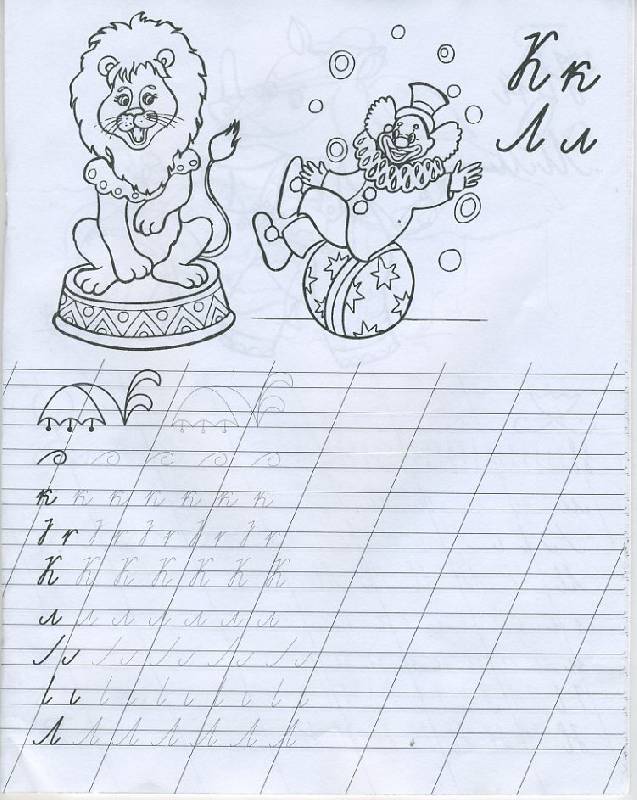 К к
Л л
к к к к к к к
К К К К К К К
л л л л л л л
Л Л Л Л Л Л Л